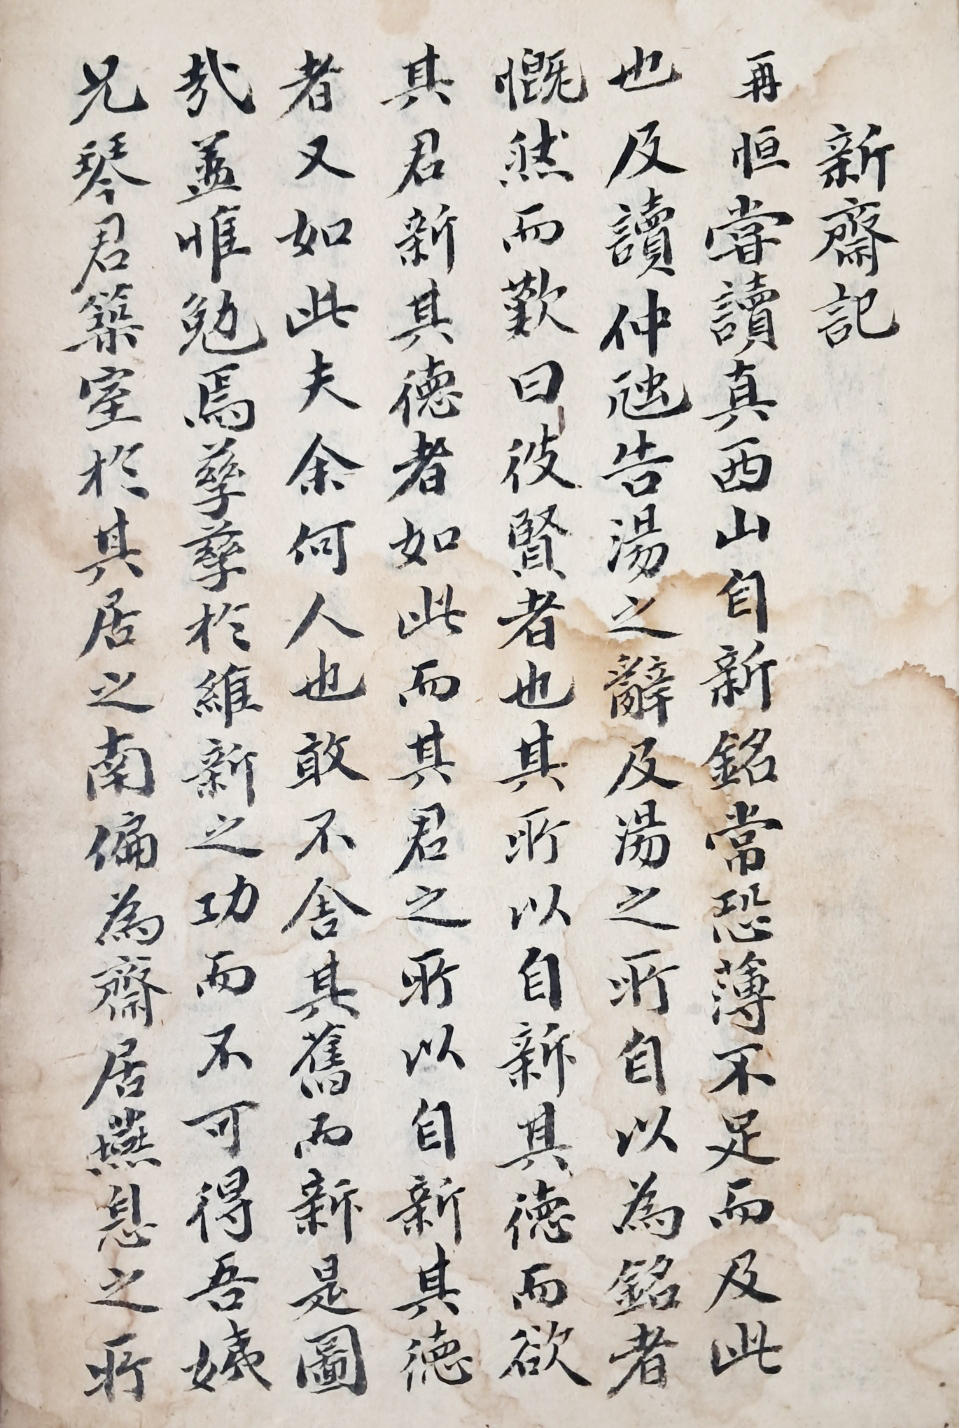 新齋記
再恒嘗讀真西山自新銘常恐薄不足而及此
也及讀仲虺告湯之辭及湯之所自以為銘者
慨然而歎曰彼賢者也其所以自新其德而欲
其君新其德者如此而其君之所以自新其德
者又如此夫余何人也敢不舍其舊而新是圖
哉盖惟勉焉孳孳於維新之功而不可得吾姨
兄琴君築室於其居之南偏為齋居燕息之所